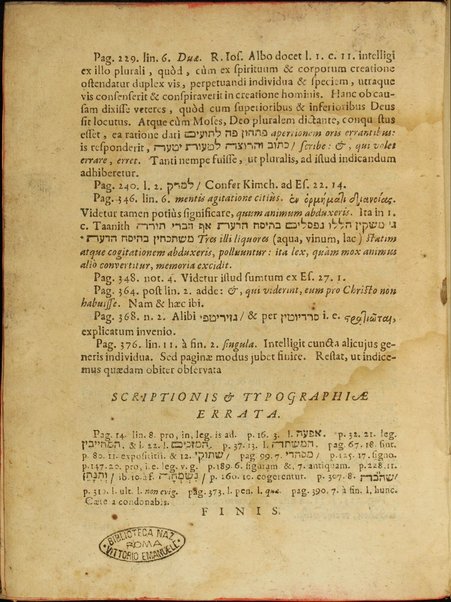 Pag. 229. lin. 6. Duæ. R. Ios. Albo docet l. 1. c. 11. intelligi
ex illo plurali, quòd, cùm ex spirituum & corporum creatione
ostendatur duplex vis, perpetuandi individua & speciem, utraque
vis consenserit & conspiraverit in creatione hominis. Hanc ob cau-
sam dixisse veteres, quòd cum superioribus & inferioribus Deus
sit locutus. Atque cùm Moses, Deo pluralem dictante, conquestus
esset, ea ratione dari פתחון פה לתועים aperitionem oris errantibus:
is responderit, כתוב והרוצה לטעות יטעה / scribe: &, qui volet
errare, erret. Tanti nempe fuisse, ut pluralis, ad istud indicandum
adhiberetur.
Pag. 240. l. 2. למרק / Confer Kimch. ad Es. 22. 14.
Pag. 346. lin. 6. mentis agitatione citiùs. ἐν ὁρμήματι διανοίας.
Videtur tamen potiùs significare, quum animum abduxeris. Ita in 1.
c. Taanith אף דברי תורה
משתכחין בהיסח הדעת Tres illi liquores (aqua, vinum, lac) statim
atque cogitationem abduxeris, polluuntur: ita lex, quàm mox animus
alio convertitur, memoria excidit.
Pag. 348. not. 4. Videtur istud sumtum ex Es. 27. 1.
Pag. 364. post lin. 2. adde: &, qui viderint, eum pro Christo non
habuisse. Nam & hæc ibi.
Pag. 368. n. 2. Alibi / & per סרדיוטין i. e. στρατιῶται,
explicatum invenio.
Pag. 376. lin. 11. à fin. 2. singula. Intelligit cuncta alicujus ge-
neris individua. Sed paginæ modus jubet finire. Restat, ut indice-
mus quædam obiter observata
SCRIPTIONIS & TYPOGRAPHIÆ
ERRATA.
Pag. 14. lin. 8. pro, in, leg. is ad. p. 16. 3. l. אפעה. p. 32. 21. leg.
& l. 22. l. המזכים. p. 37. 13. l. המשתדה. pag. 67. 18. sint.
p. 80. 11. expositiis. & 12. l. שתוקי / pag 99. 7. מסתרי / p. 125. 17. signo.
p. 147. 20. pro, i. e. leg. v. g. p. 189. 6. figuram & 7. antiquam. p. 228. 11.
ויתנתן / ib. 10. à f. נשמחה / p. 160. 10. cogerentur. p. 307. 8.
p. 310. l. ult. l. non exig. pag. 373. l. pen. l. quæ. pag. 390. 7. à fin. l. hunc.
Cætera condonabis.
FINIS.
BIBLIOTECA NAZ.
ROMA
VITTORIO EMANUELE